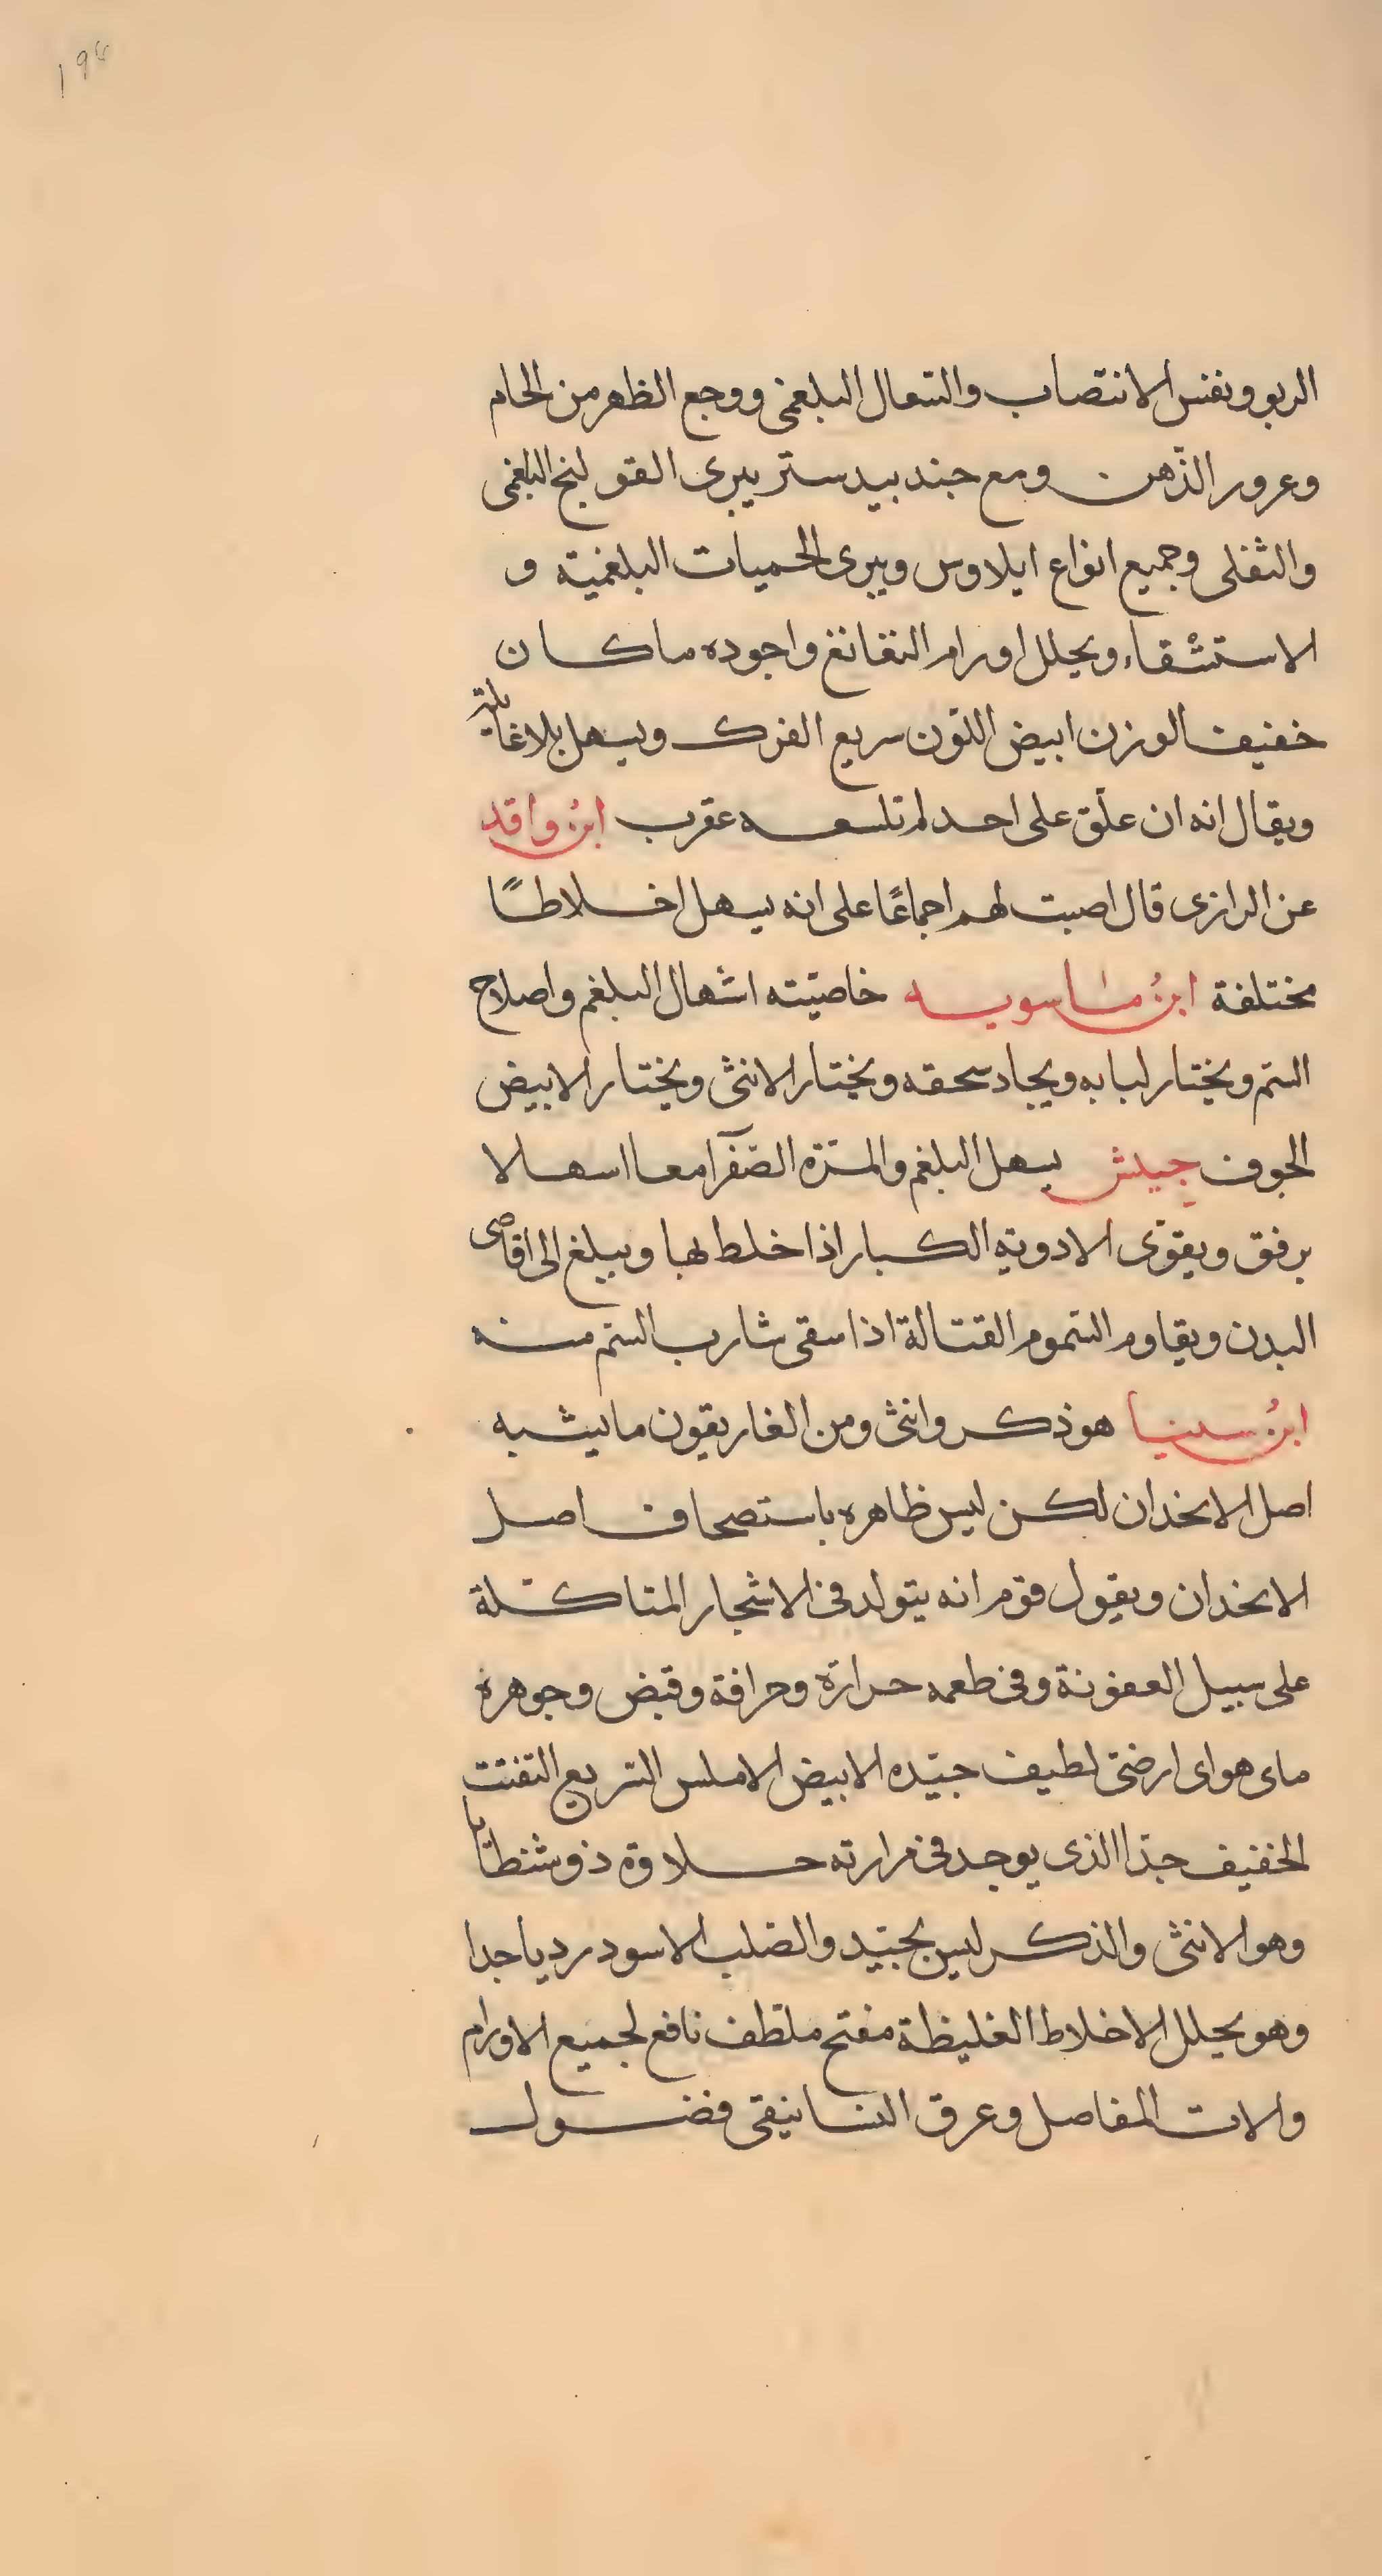 ١٩٤
الربو ونفس الانتصاب والسعال البلغمى ووجع الظهر من الخام
وعرور الذهن ومع جندبيدستر يبرى القولنج البلغمى
والثفلى وجميع انواع ايلاوس ويبرى الحميات البلغمية و
الاستسقاء ويحلل اورام النغانغ واجوده ماكان
خفيف الوزن ابيض اللون سريع الفرك ويسهل بلاغائلة
ويقال انه ان علّق على احد لم تلسعه عقرب ابنُ واقد
عن الرازى قال اصبت لهم اجماعًا على انه يسهل اخلاطًا
مختلفة ابنُ ماسويه خاصيّته اسهال البلغم واصلاح
السّم ويختار لبابه ويجاد سحقه ويختار الانثى ويختار الابيض
الجوف حبيش يسهل البلغم والمرّة الصّفرآ معا اسهالا
برفق ويقوّى الادوية الكبار اذا خلط بها ويبلغ الى اقاصى
البدن ويقاوم السّموم القتالة اذا سقى شارب السّم منه
ابنُ سينا هو ذكر وانثى ومن الغاريقون مايشبه
اصل الانجذان لكن ليس ظاهره باستصحاف اصل
الانجذان ويقول قوم انه يتولد فى الاشجار المتاكّلة
على سبيل العفونة وفى طعمه حرارة وحرافة وقبض وجوهره
ماى هواى ارضىّ لطيف جيّده الابيض الاملس السّريع التفتت
الخفيف جدّا الذى يوجد فى مرارته حلاوة ذو شظايا
وهو الانثى والذكر ليس بجيّد والصّلب الاسود رديا جدا
وهو يحلل الاخلاط الغليظة مفتح ملطّف نافع لجميع الاورام
والات المفاصل وعرق النسا ينقى فضول